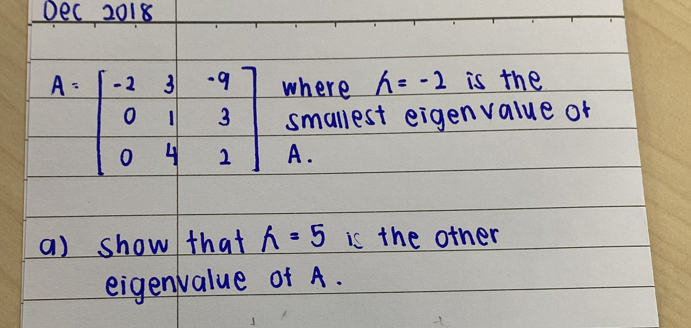 Dec 2018
A = [ -2 3 -9 ] where λ = -2 is the
0 1 3 smallest eigenvalue of
0 4 2 A.
a) show that λ = 5 is the other
eigenvalue of A.